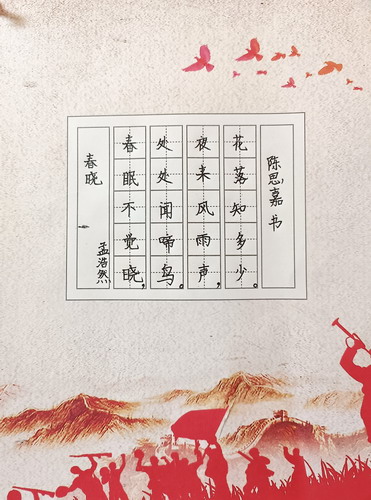 春晓
孟浩然
春眠不觉晓，
处处闻啼鸟。
夜来风雨声，
花落知多少。
陈思嘉书